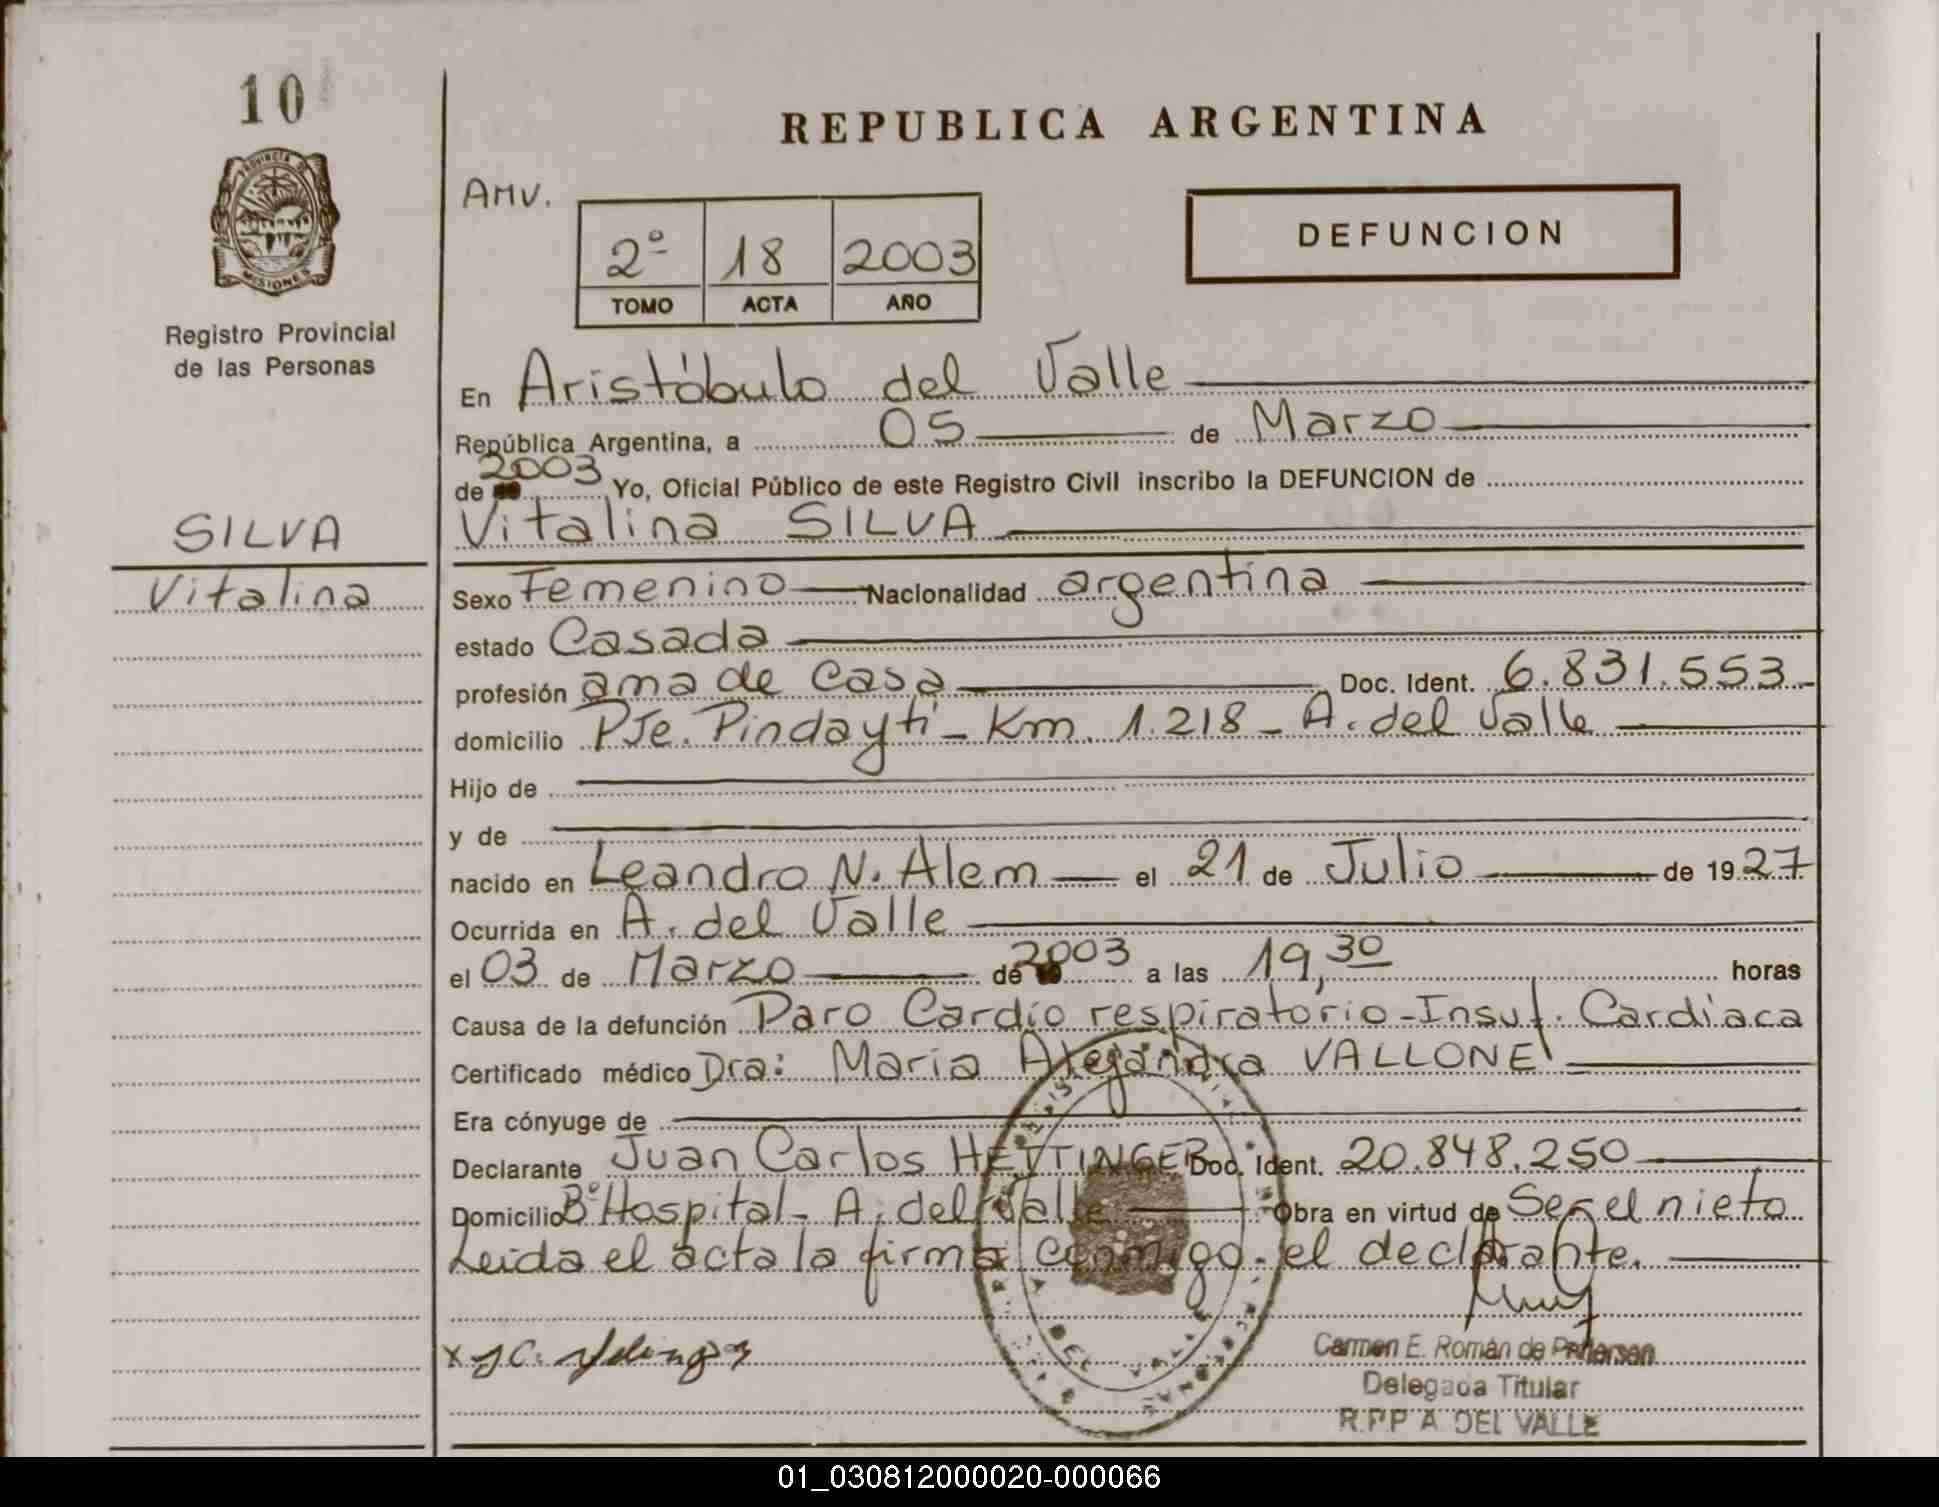 10
PROVINCIA DE
MISIONES
Registro Provincial
de las Personas
SILVA
Vitalina
REPUBLICA ARGENTINA
AMV.
DEFUNCION
2º 18 2003
TOMO ACTA AÑO
En Aristóbulo del Valle
República Argentina, a 05 de Marzo
de 2003 Yo, Oficial Público de este Registro Civil inscribo la DEFUNCION de
Vitalina SILVA
Sexo Femenino Nacionalidad argentina
estado Casada
profesión ama de casa Doc. Ident. 6.831.553
domicilio PJe. Pindaytí - Km. 1.218 - A. del Valle
Hijo de
y de
nacido en Leandro N. Alem el 21 de Julio de 1927
Ocurrida en A. del Valle
el 03 de Marzo de 2003 a las 19,30 horas
Causa de la defunción Paro Cardio respiratorio - Insuf. Cardiaca
Certificado médico Dra: Maria Alejandra VALLONE
Era cónyuge de
Declarante Juan Carlos HETTINGER Doc. Ident. 20.848.250
Domicilio Bº Hospital - A. del Valle Obra en virtud de Ser el nieto
Leida el acta la firma conmigo el declarante.
Carmen E. Román de Petersen
Delegada Titular
R.P.P A. DEL VALLE
01_030812000020-000066